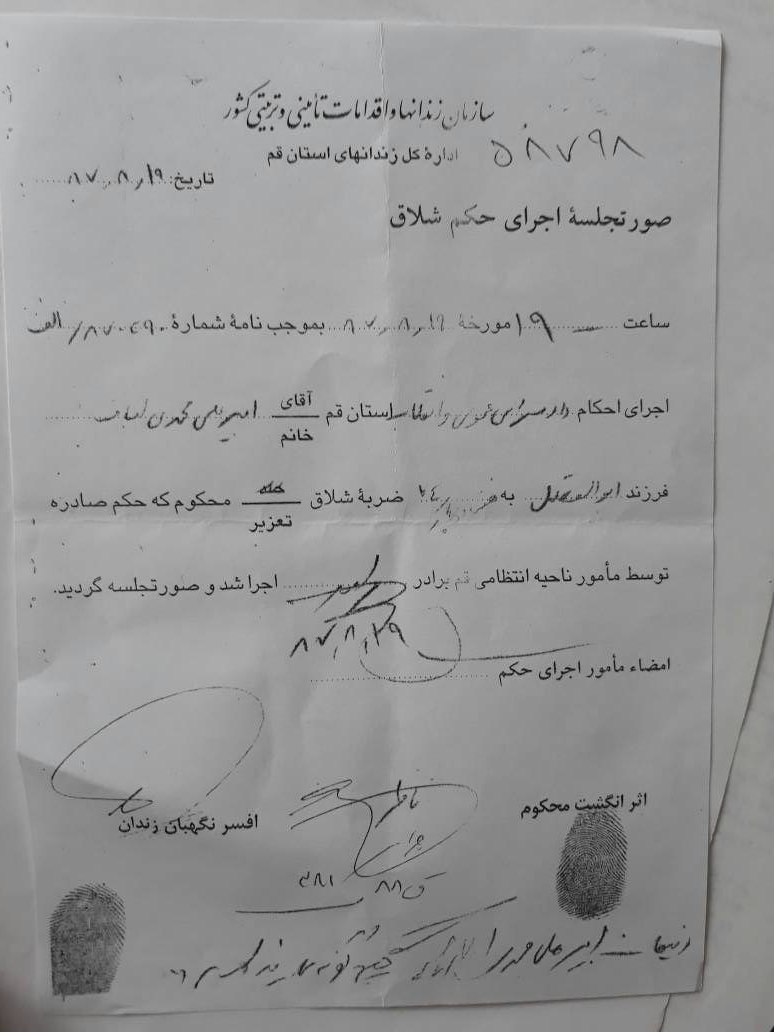 سازمان زندانها و اقدامات تأمینی و تربیتی کشور
۵۸۷۹۸
ادارهٔ کل زندانهای استان قم
تاریخ: ۸۷,۸,۱۹
صورتجلسهٔ اجرای حکم شلاق
ساعت ۱۹ مورخهٔ ۸۷,۸,۱۹ بموجب نامهٔ شمارهٔ /الف
اجرای احکام دادسرای عمومی و انقلاب استان قم آقای خانم امیرعلی محمدی لباف
فرزند ابوالفضل به ضربهٔ شلاق حد تعزیر محکوم که حکم صادره
توسط مأمور ناحیه انتظامی قم برادر اجرا شد و صورتجلسه گردید.
۸۷,۸,۱۹
امضاء مأمور اجرای حکم
اثر انگشت محکوم
ناظر
افسر نگهبان زندان
ق ۸۸ ۳۸۱
اینجانب امیرعلی محمدی